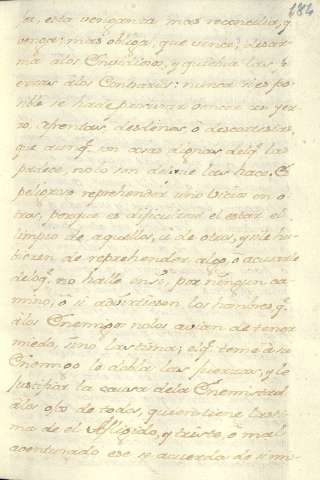 184
ja, esta venganza mas reconcilia, q
vence; mas obliga, que vence; desar-
ma á los Enemigos, y quiebra las
á los Contrarios: nunca si es po-
sible se ha de
afrentas, desdenes, ó descortesias,
que aunq. son mas dignas del q. las
padece, no lo son del que las hace. Es
peligroso reprehender un vicio en o-
tros, porque es dificultoso el estar el
limpio de aquellos, ú de otros, y si le hu-
bieren de reprehender algo, ó acusarle
delo q. no halle en si, por ningun ca-
mino, ó si advirtiesen los hombres q.
á los Enemigos no los avian de tener
miedo, sino lastima; el q. teme á su
Enemigo le dobla las fuerzas, y le
justifica la causa de la Enemistad
á los ojos de todos, quien tiene lasti-
ma de el Afligido, y triste, ó mal
aconturado ese se acuerda de si mi-